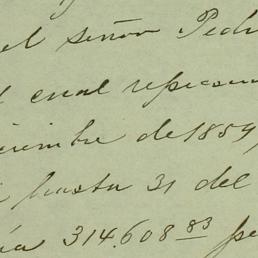 el señor Pedr
l cual represen
ciembre de 1859,
hasta 31 del
ía 314.608 83 pe